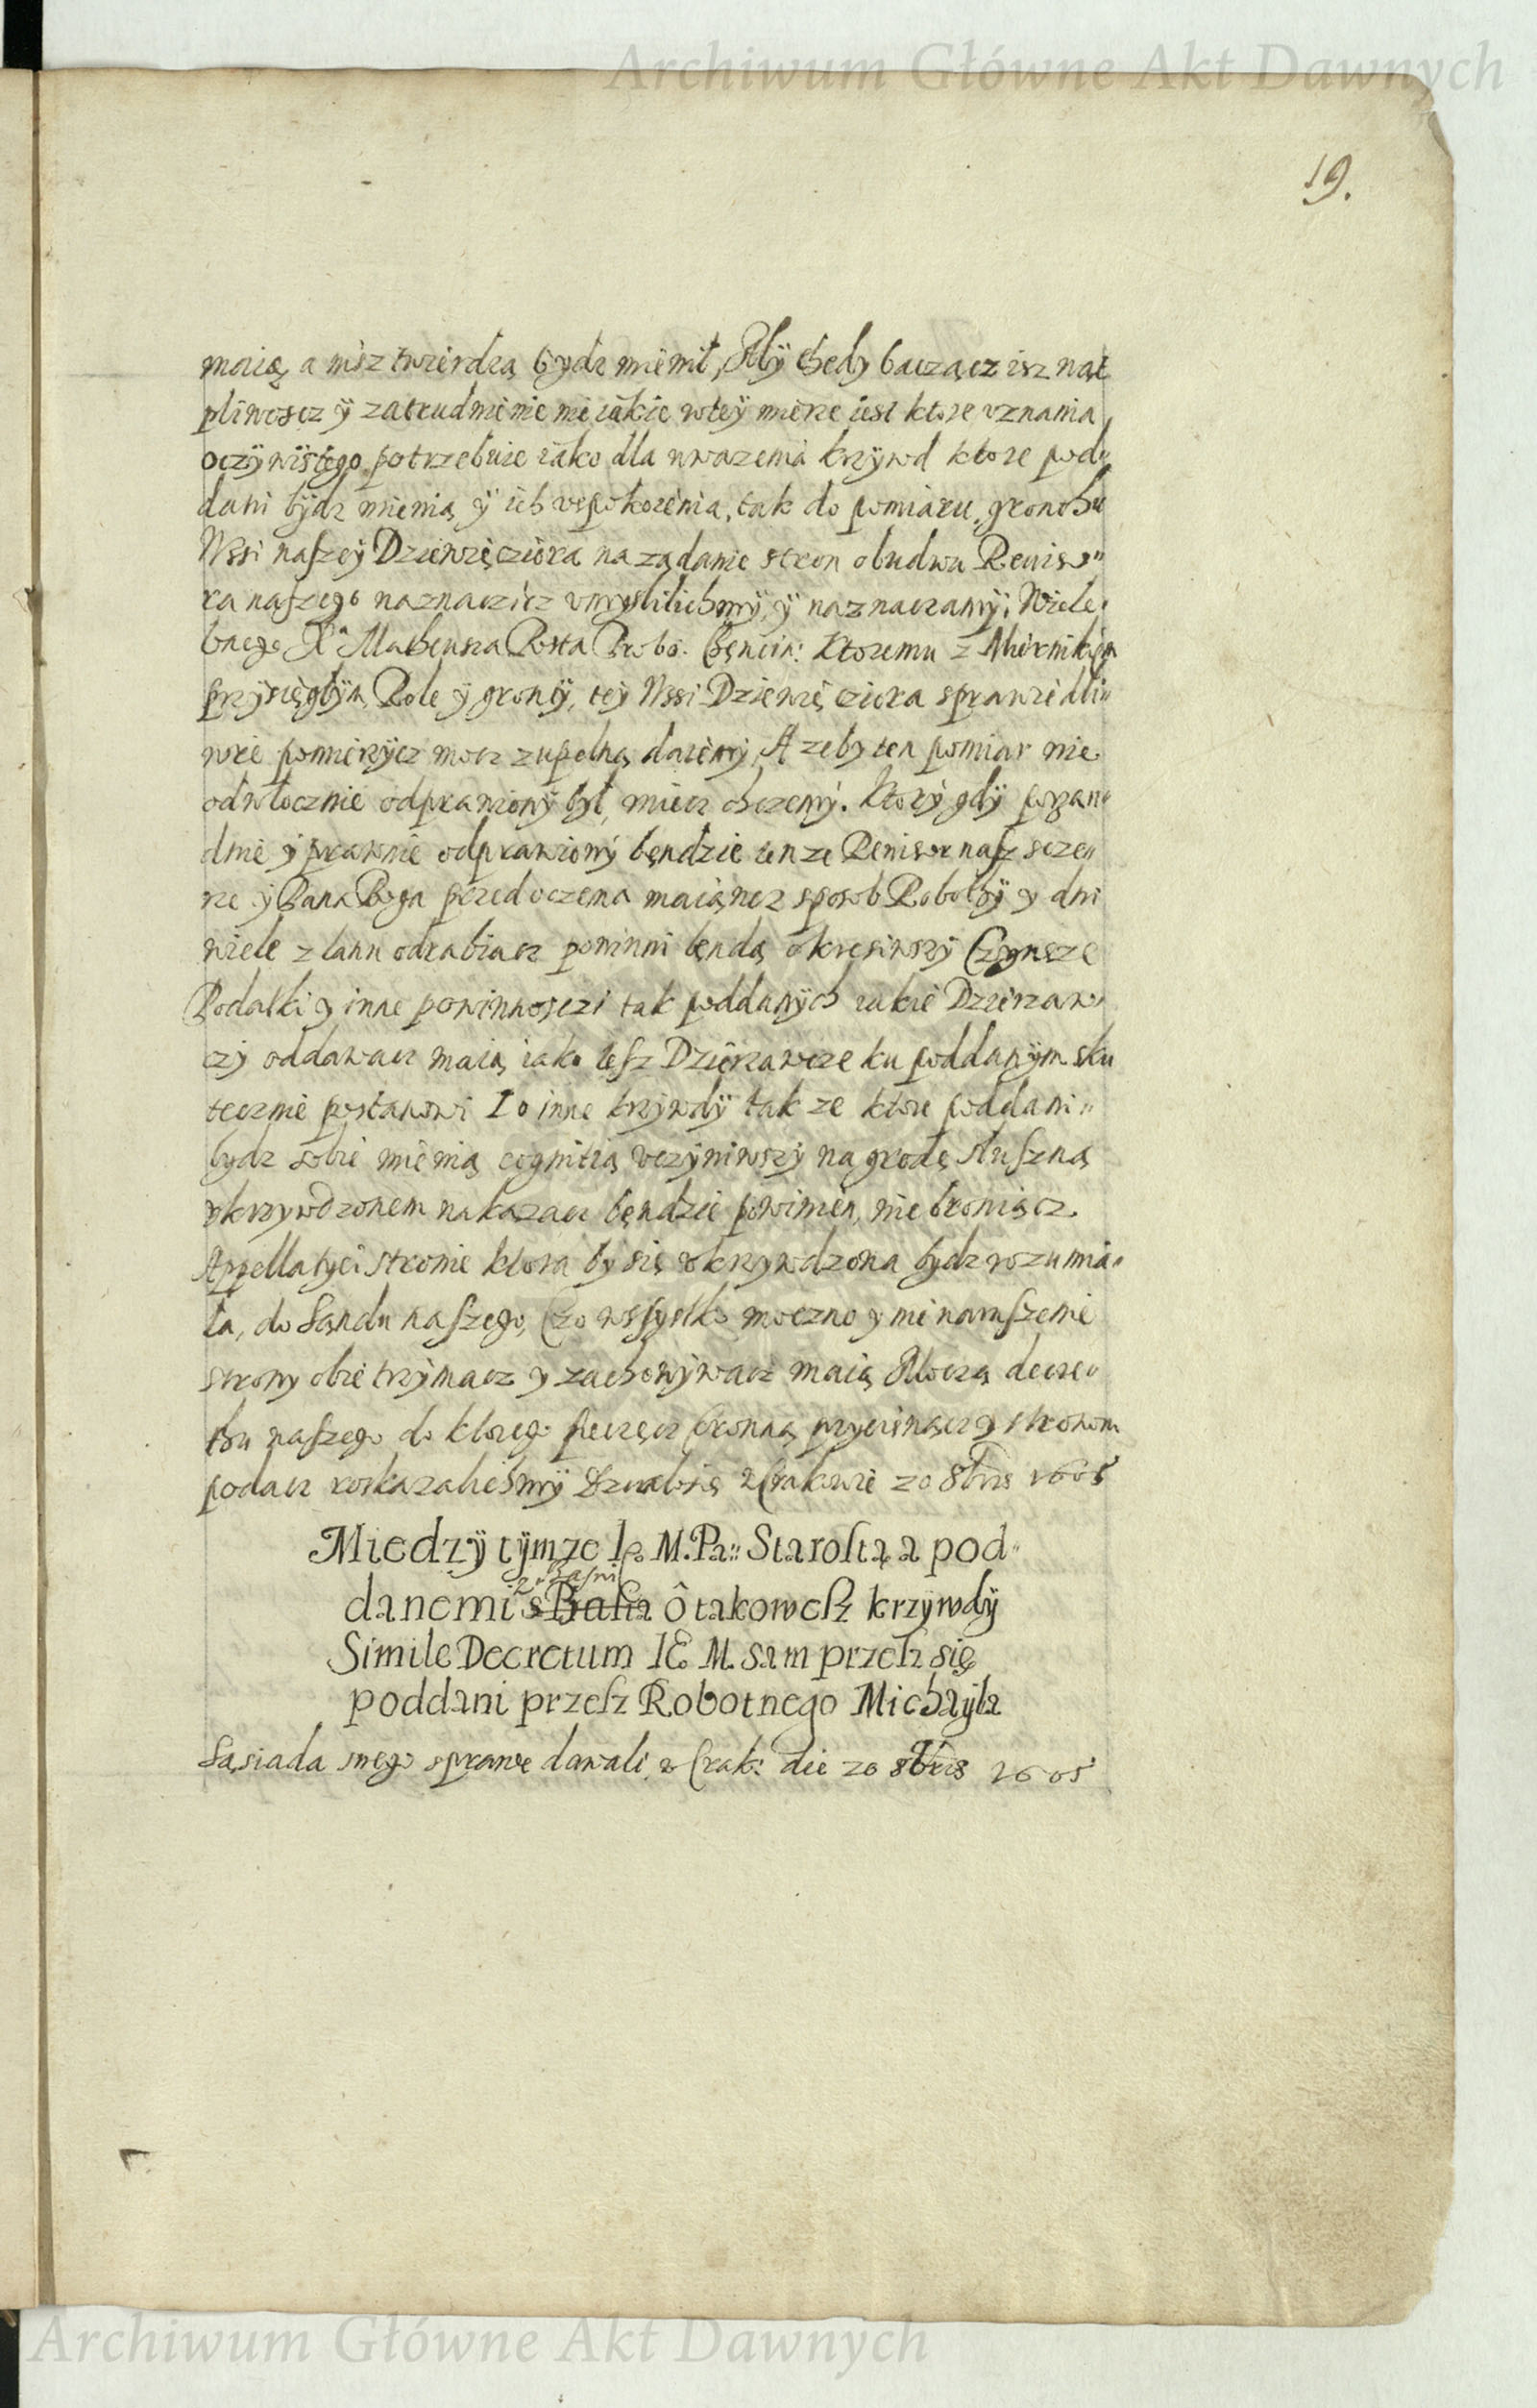 Archiwum Główne Akt Dawnych
19.
maią, a nisz twierdzą bydz mienił, My thedy baczącz isz wąt
pliwoscz ÿ zatrudnienie nieiakie wteÿ mierze iest ktore vznania
oczÿwistego potrzebuie iako dla uwazenia krzÿwd ktore pod„
dani bÿdz mienią ÿ ich vspokoienia, tak do pomiaru gronthu
Wssi naszeÿ Dziewięcziora na ządanie stron obudwu Reuiso„
ra naszego naznaczicz vmyslilichmÿ, ÿ naznaczamÿ, Wiele„
bnego X. Matheusza Probo. Chęncin: Ktoremu z Miernikiem
przÿsięgłÿm Role ÿ gronty, teÿ Wssi Dziewięcziora sprawiedli„
wie pomierzÿcz mocz zupełną daiemÿ, A zeby ten pomiar nie
odwłocznie odprawionÿ był, miecz chczemÿ. Ktorÿ gdÿ porzan„
dnie ÿ prawnie odprawionÿ bęndzie tenze Reuisor nasz scze„
rze ÿ Pana Boga przed oczema maiącz sposob Robothÿ y dni
wiele z lanu odrabiacz powinni bęndą okresiwszÿ Czynsze
Podatki y inne powinnosczi tak poddanÿch iakie Dzierzaw„
czÿ oddawacz maią iako tesz Dzierzawcze ku poddanÿm sku
tecznie postanowi I o inne krzÿwdÿ tak ze ktore poddani„
bydz sobie mienią cognitią vczÿniwszÿ nagrodę słuszną
vkrzywdzonem nakazacz bęndzie powinien, nie broniącz.
Appellatyei stronie ktora by się vkrzywdzona bydz rozumia„
ła, do Sandu naszego, Czo wssystko moczno y nienaruszenie
strony obie trzÿmacz y zachowÿwacz maią Moczą decre„
thu naszego do ktorego pieczęcz Coronną przycisnącz y stronom
podacz roskazalismÿ w Crakowie 20 8bris 1605
Miedzÿ tÿmze Ie° M. Pa„ Starostą a pod„
danemi s Basia ô takowesz krzÿwdÿ
Simile Decretum IE° M. sam przesz się
poddani przesz Robotnego Michaÿla
Sąsiada swego sprawe dawali, w Crak: die 20 8bris 1605
Archiwum Główne Akt Dawnych